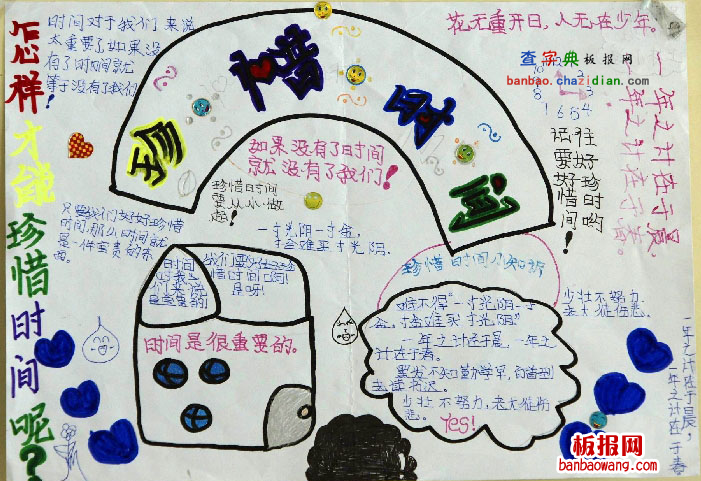 怎样才能珍惜时间呢?
时间对于我们来说
太重要了如果没
有了时间就
等于没有了我们!
珍惜时间
花无重开日,人无在少年。
查字典 板报网
banbao.chazidian.com
一年之计在于晨
一年之计在于春。
往好珍惜时间哟
话要好好
如果没有了时间
就没有了我们!
珍惜时间
要从小做
起!
一寸光阴一寸金,
寸金难买寸光阴.
只要我们好好珍惜
时间那么时间就
是一件宝贵的东
西。
时间
对我
们来说
是重要的
时间是很重要的。
珍惜时间小知识
难不得"一寸光阴一寸
金,寸金难买寸光阴"
一年之计在于晨,一年之
计在于春。
黑发不知勤学早,白首
方
少壮不努力,老大徒伤
悲。
Yes!
少壮不努力,
老大徒伤悲。
一年之计在于晨,
一年之计在于春
板报网
banbaowang.com